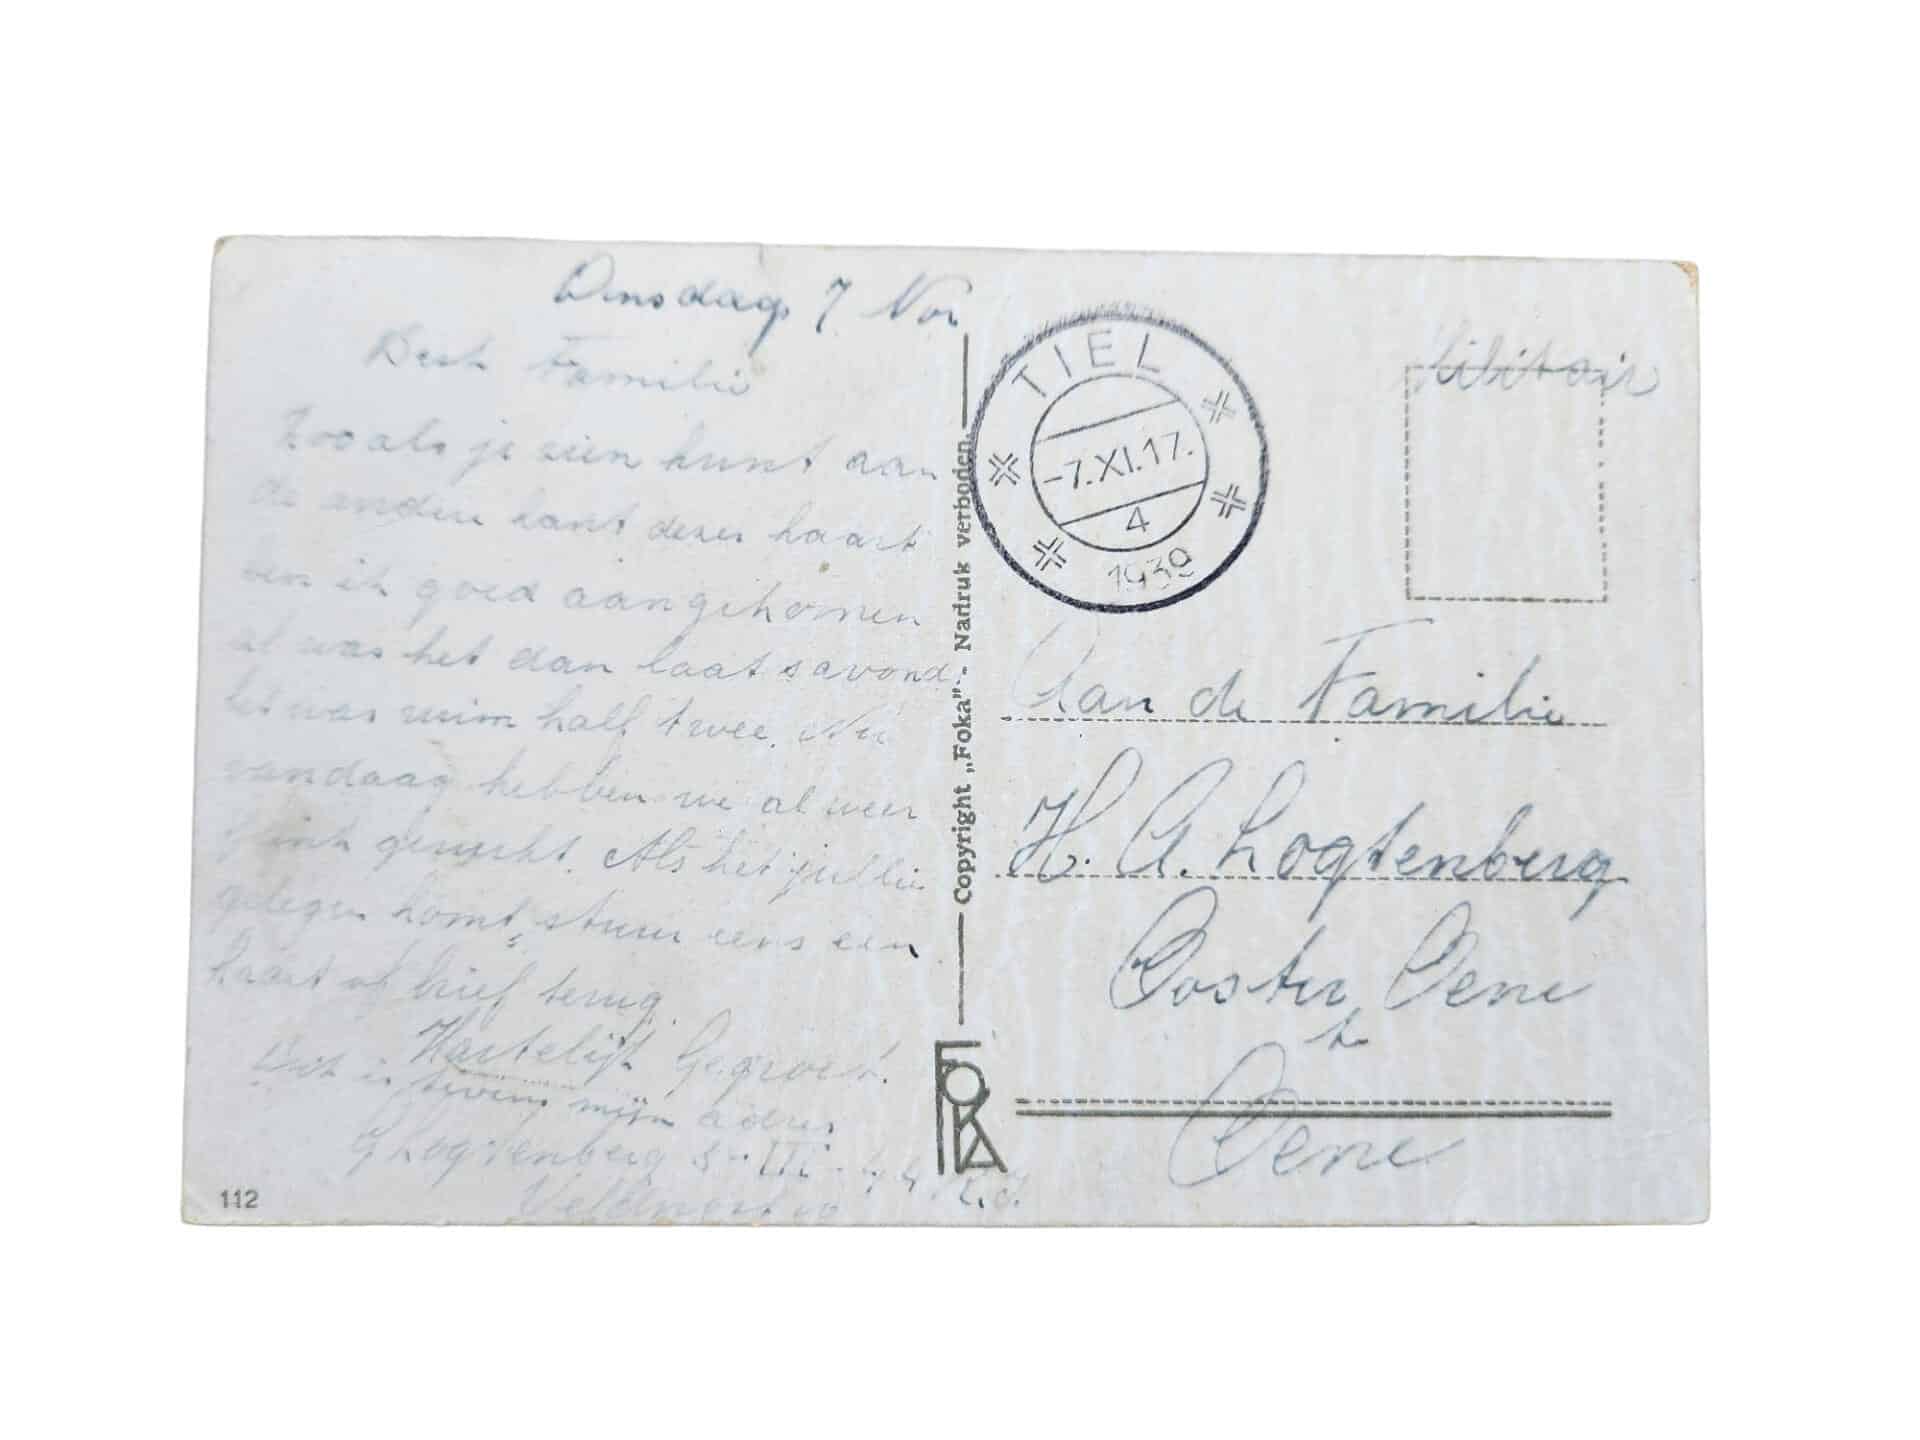 Dinsdag 7 Nov
Beste Familie
Zooals je zien kunt aan
de andere kant dezer kaart
ben ik goed aangekomen
al was het dan laat s avonds
het was ruim half twee. Nu
vandaag hebben we al weer
flink gewerkt. Als het jullie
gelegen komt, stuur eens een
kaart of brief terug.
Hartelijk Gegroet.
Dit is tevens mijn adres
G Logtenberg 3-III-44.R.I.
Veldpost
112
Copyright „Foka" - Nadruk verboden.
FOKA
TIEL
-7.XI.17.
4
1939
Militair
Aan de Familie
H. A. Logtenberg
Ooster Oene
te
Oene